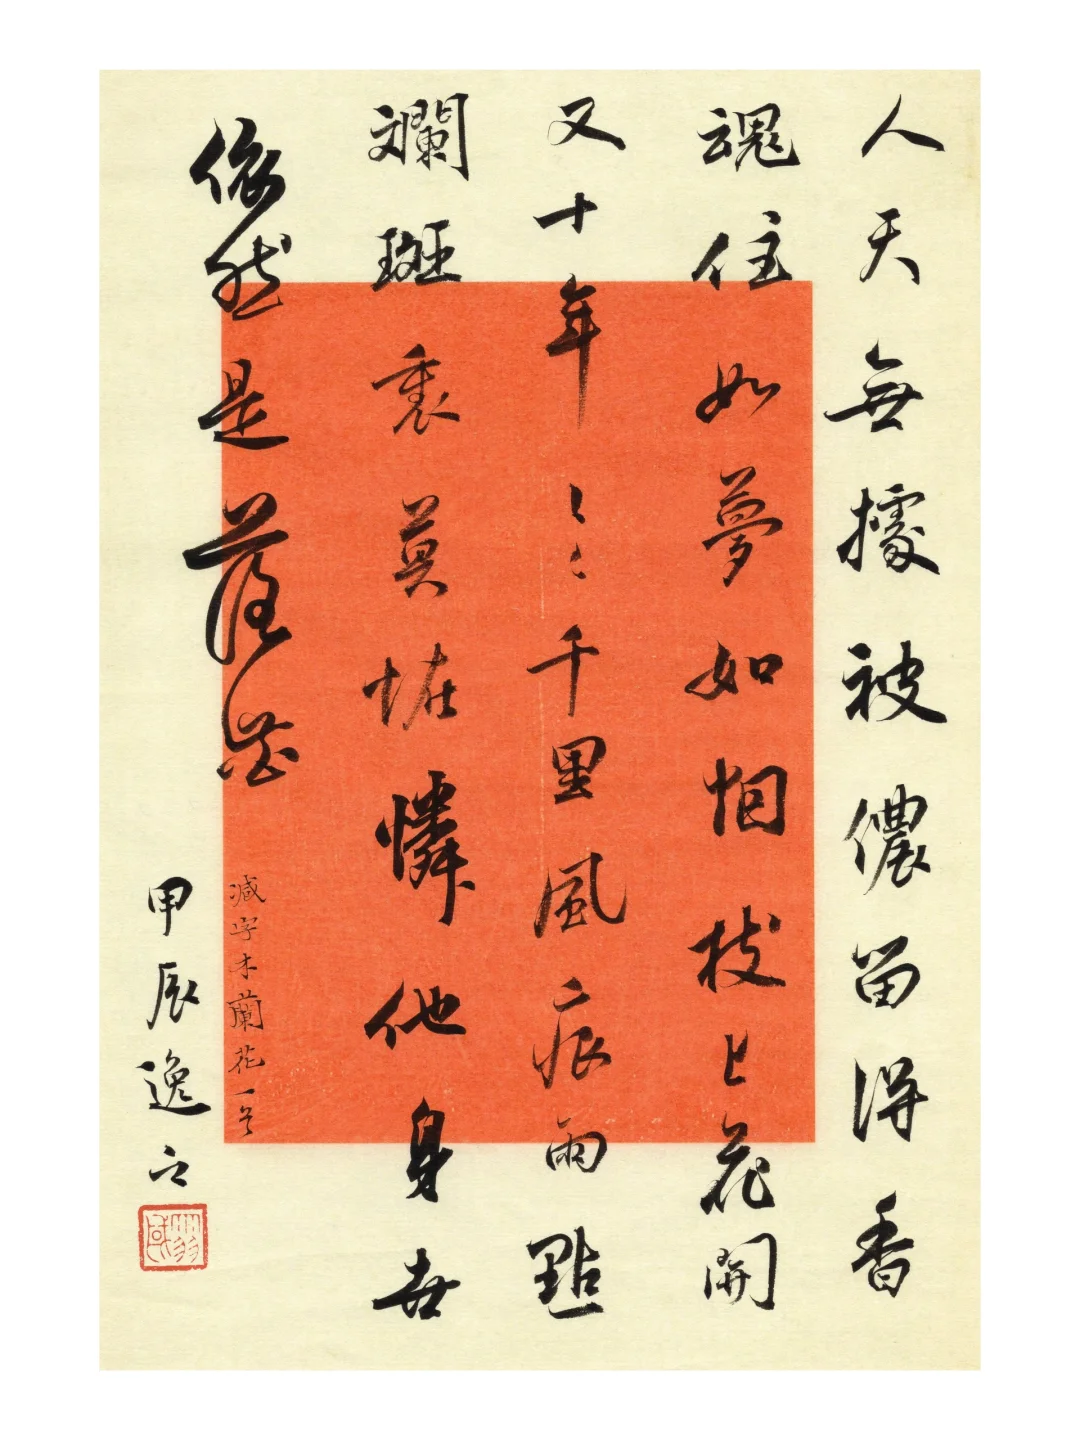 人天無據被儂留得香
魂住如夢如烟枝上花開
又十年〻〻千里風痕雨點
斕斑裏莫怪憐他身世
依然是落花
減字木蘭花一首
甲辰逸之